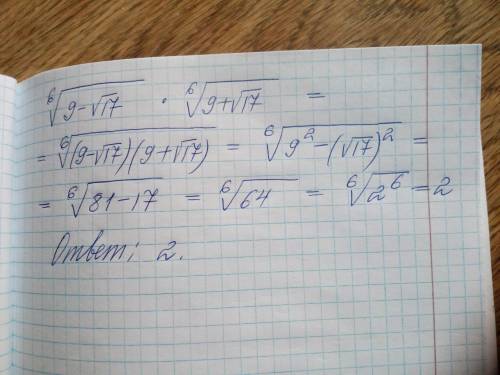 ⁶√(9-√17) · ⁶√(9+√17) =
= ⁶√((9-√17)(9+√17)) = ⁶√(9²-(√17)²) =
= ⁶√(81-17) = ⁶√64 = ⁶√(2⁶) = 2
Ответ: 2.